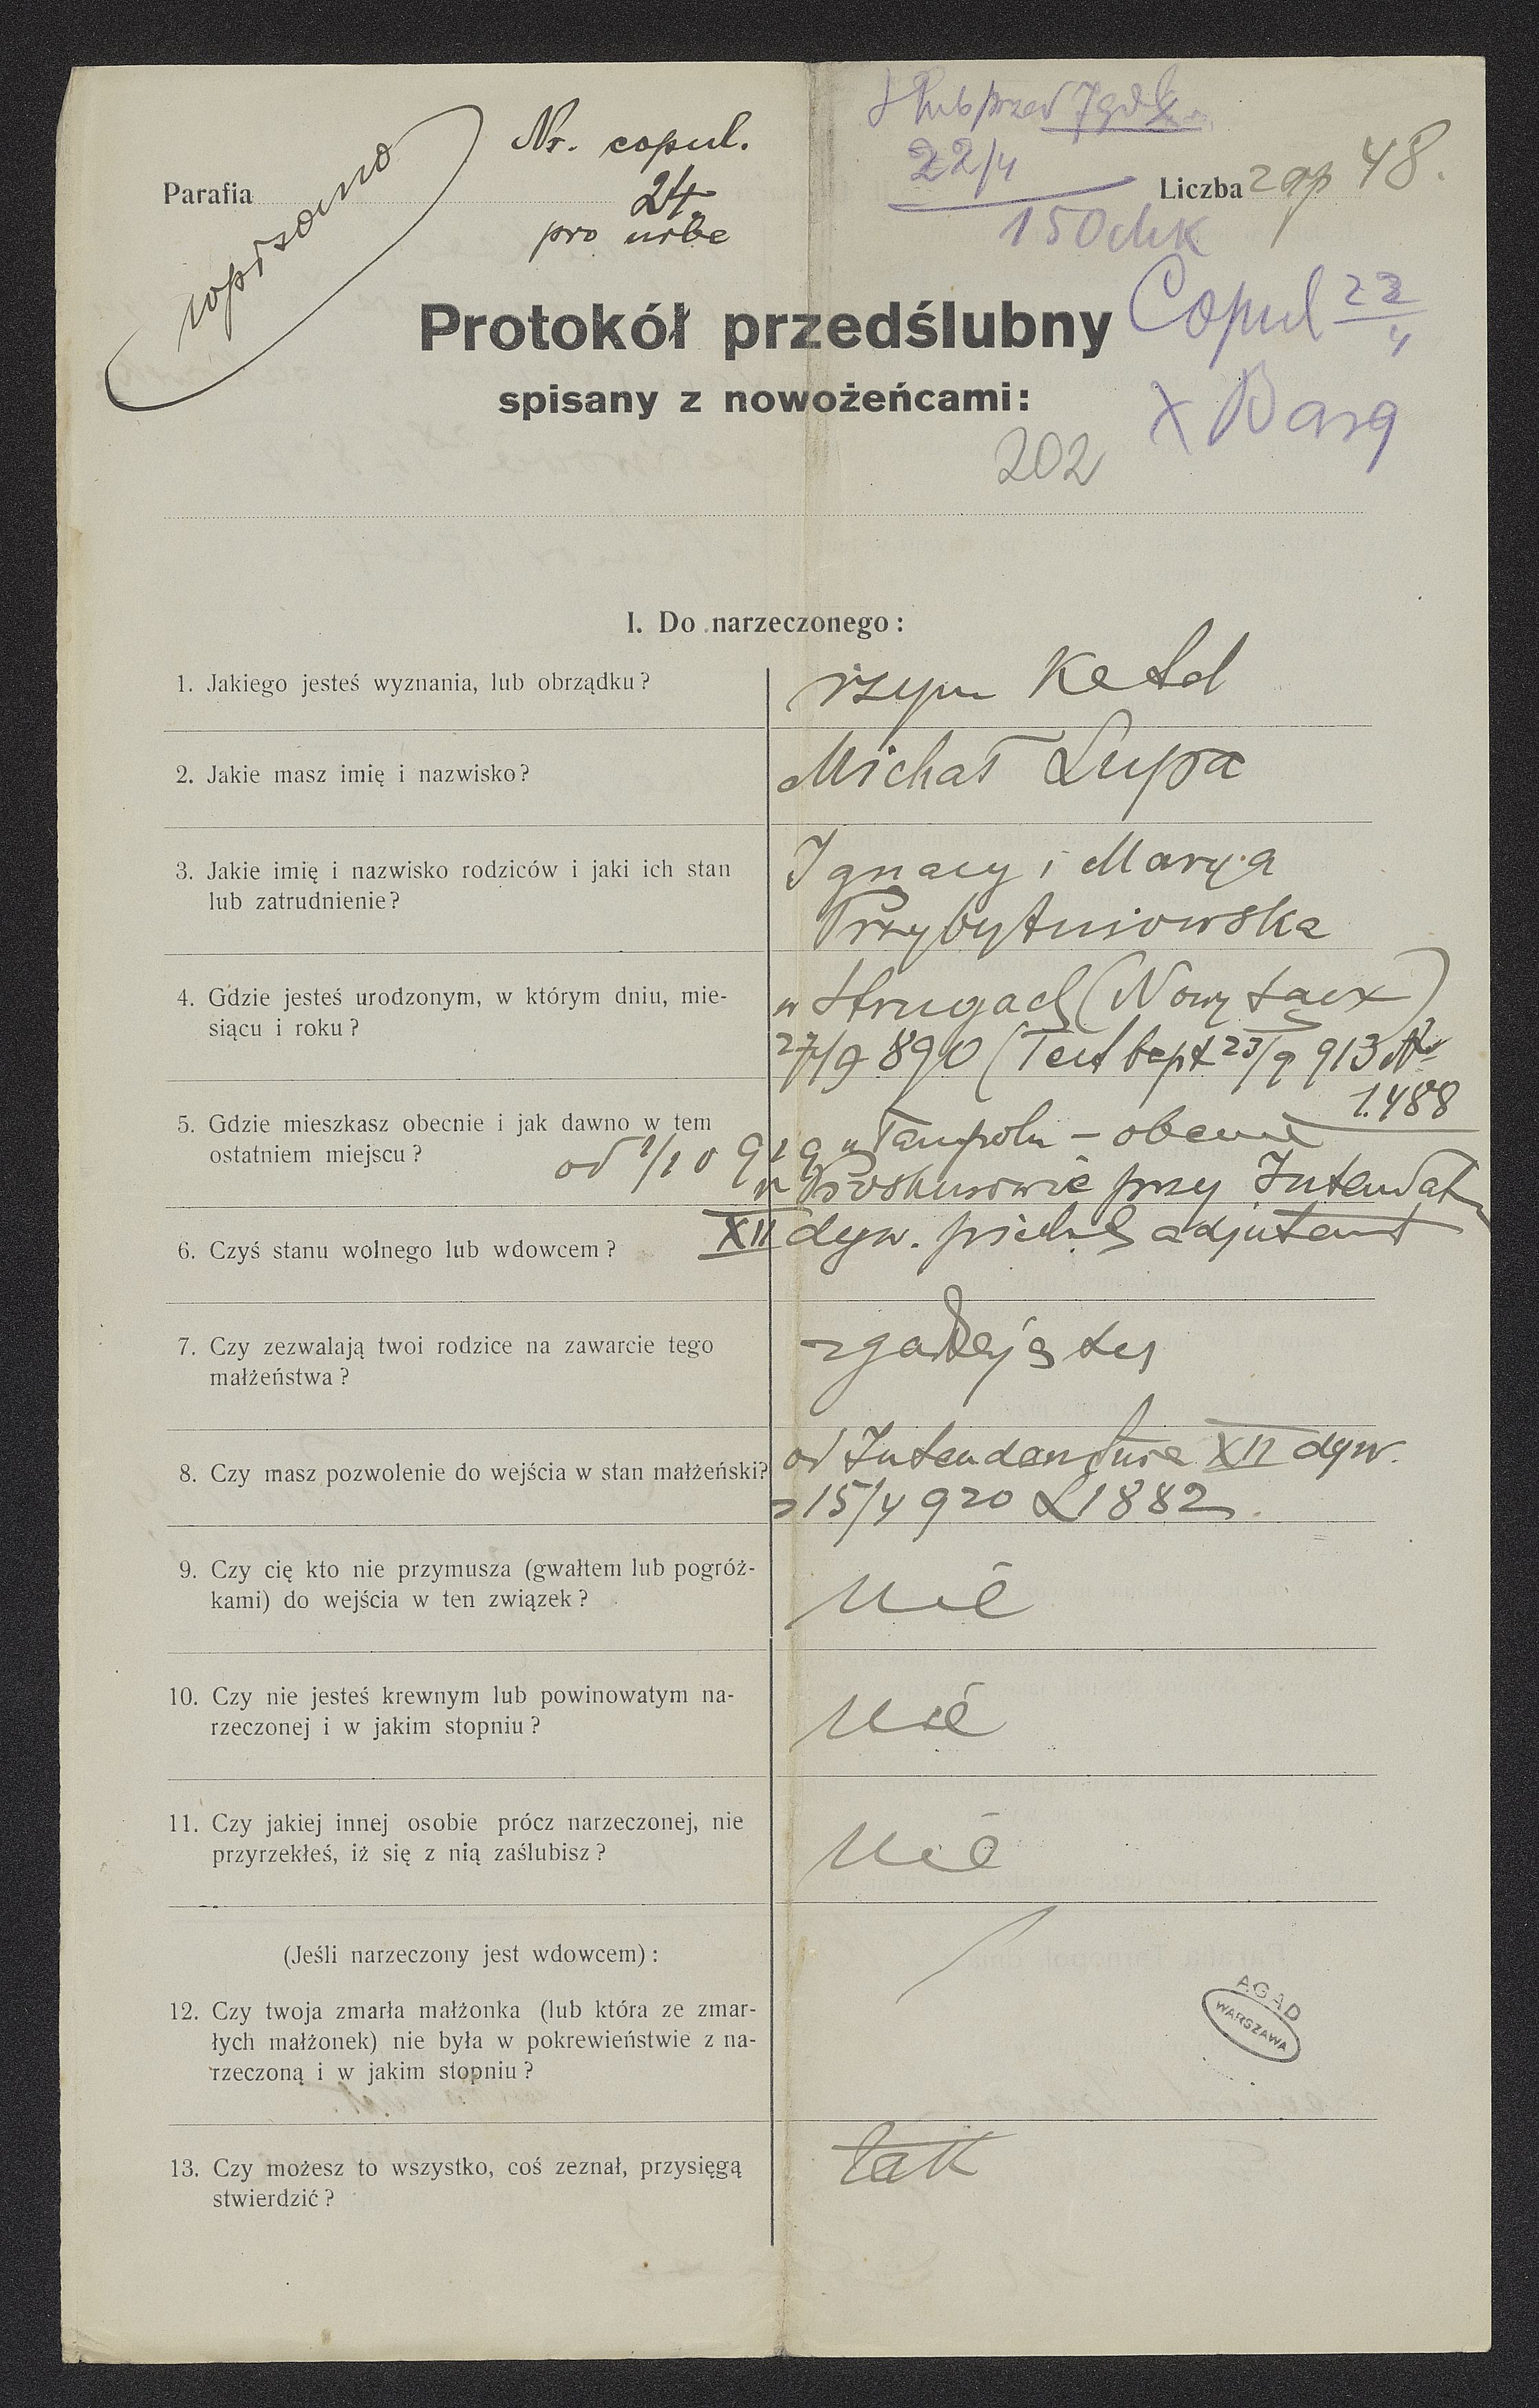 wpisano
Nr. copul.
24.
pro urbe
Ślub przed 7
22/4
150 chk
Parafia
Liczba zap 48.
Copul 22/4
X Barg
Protokół przedślubny
spisany z nowożeńcami:
202
I. Do narzeczonego:
1. Jakiego jesteś wyznania, lub obrządku?
rzym Katol
2. Jakie masz imię i nazwisko?
Michał Lupa
3. Jakie imię i nazwisko rodziców i jaki ich stan
lub zatrudnienie?
Ignacy i Marya
Przybytniowska
4. Gdzie jesteś urodzonym, w którym dniu, mie-
siącu i roku?
w Strugach (Nowy Sącz)
27/9 890 (Test bapt 23/9 913 N
1.488
5. Gdzie mieszkasz obecnie i jak dawno w tem
ostatniem miejscu?
od 1/10 919 w Tarnpolu – obecnie
w Proskurowie przy Intendat
6. Czyś stanu wolnego lub wdowcem?
XII dyw. piech adjutant
7. Czy zezwalają twoi rodzice na zawarcie tego
małżeństwa?
zgadzają się
8. Czy masz pozwolenie do wejścia w stan małżeński?
od Intendantura XII dyw.
z 15/4 920 L 1882.
9. Czy cię kto nie przymusza (gwałtem lub pogróż-
kami) do wejścia w ten związek?
nie
10. Czy nie jesteś krewnym lub powinowatym na-
rzeczonej i w jakim stopniu?
nie
11. Czy jakiej innej osobie prócz narzeczonej, nie
przyrzekłeś, iż się z nią zaślubisz?
nie
(Jeśli narzeczony jest wdowcem):
12. Czy twoja zmarła małżonka (lub która ze zmar-
łych małżonek) nie była w pokrewieństwie z na-
rzeczoną i w jakim stopniu?
AGAD
WARSZAWA
13. Czy możesz to wszystko, coś zeznał, przysięgą
stwierdzić?
tak